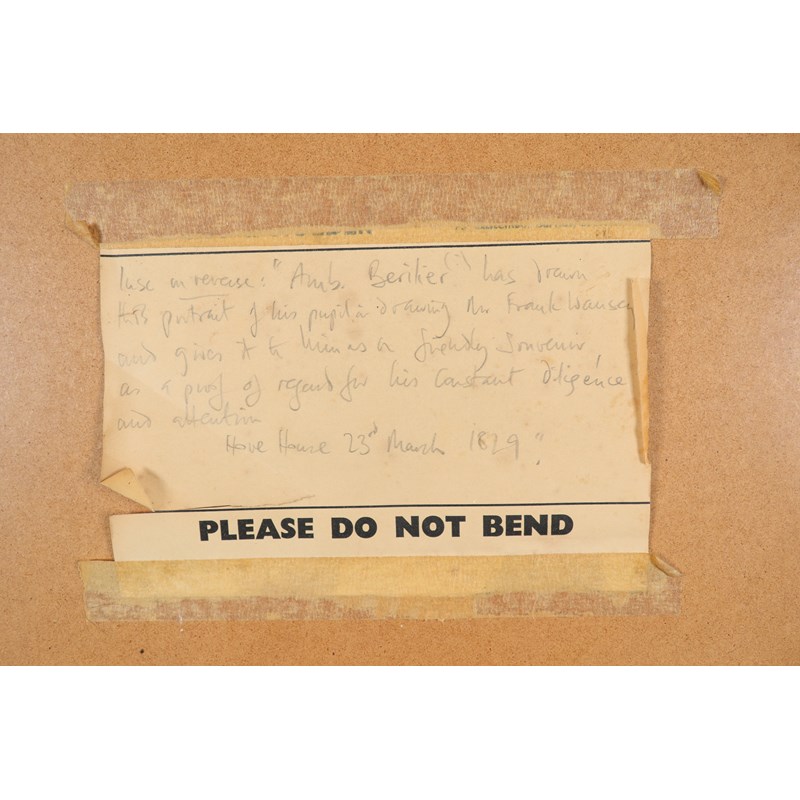 Insc on reverse: "Amb. Berikier (?) has drawn
portrait of his pupil in drawing Mr Frank
and gives it to him as a friendly Souvenir
as a proof of regard for his Constant Diligence
and attention
Hove House 23rd March 1829".
PLEASE DO NOT BEND